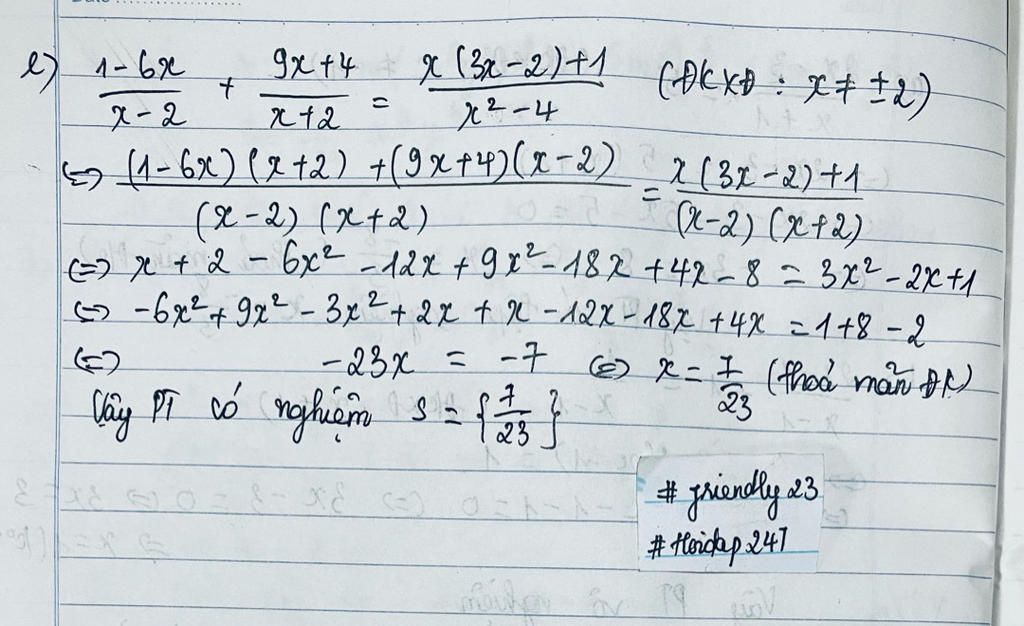 e) (1-6x)/(x-2) + (9x+4)/(x+2) = (x(3x-2)+1)/(x²-4) (ĐKXĐ : x ≠ ±2)
⇔ ((1-6x)(x+2)+(9x+4)(x-2))/((x-2)(x+2)) = (x(3x-2)+1)/((x-2)(x+2))
⇔ x + 2 - 6x² - 12x + 9x² - 18x + 4x - 8 = 3x² - 2x + 1
⇔ -6x² + 9x² - 3x² + 2x + x - 12x - 18x + 4x = 1 + 8 - 2
⇔ -23x = -7 ⇔ x = 7/23 (thoả mãn ĐK)
Vậy PT có nghiệm S = {7/23}
# friendly 23
# Hoidap 247